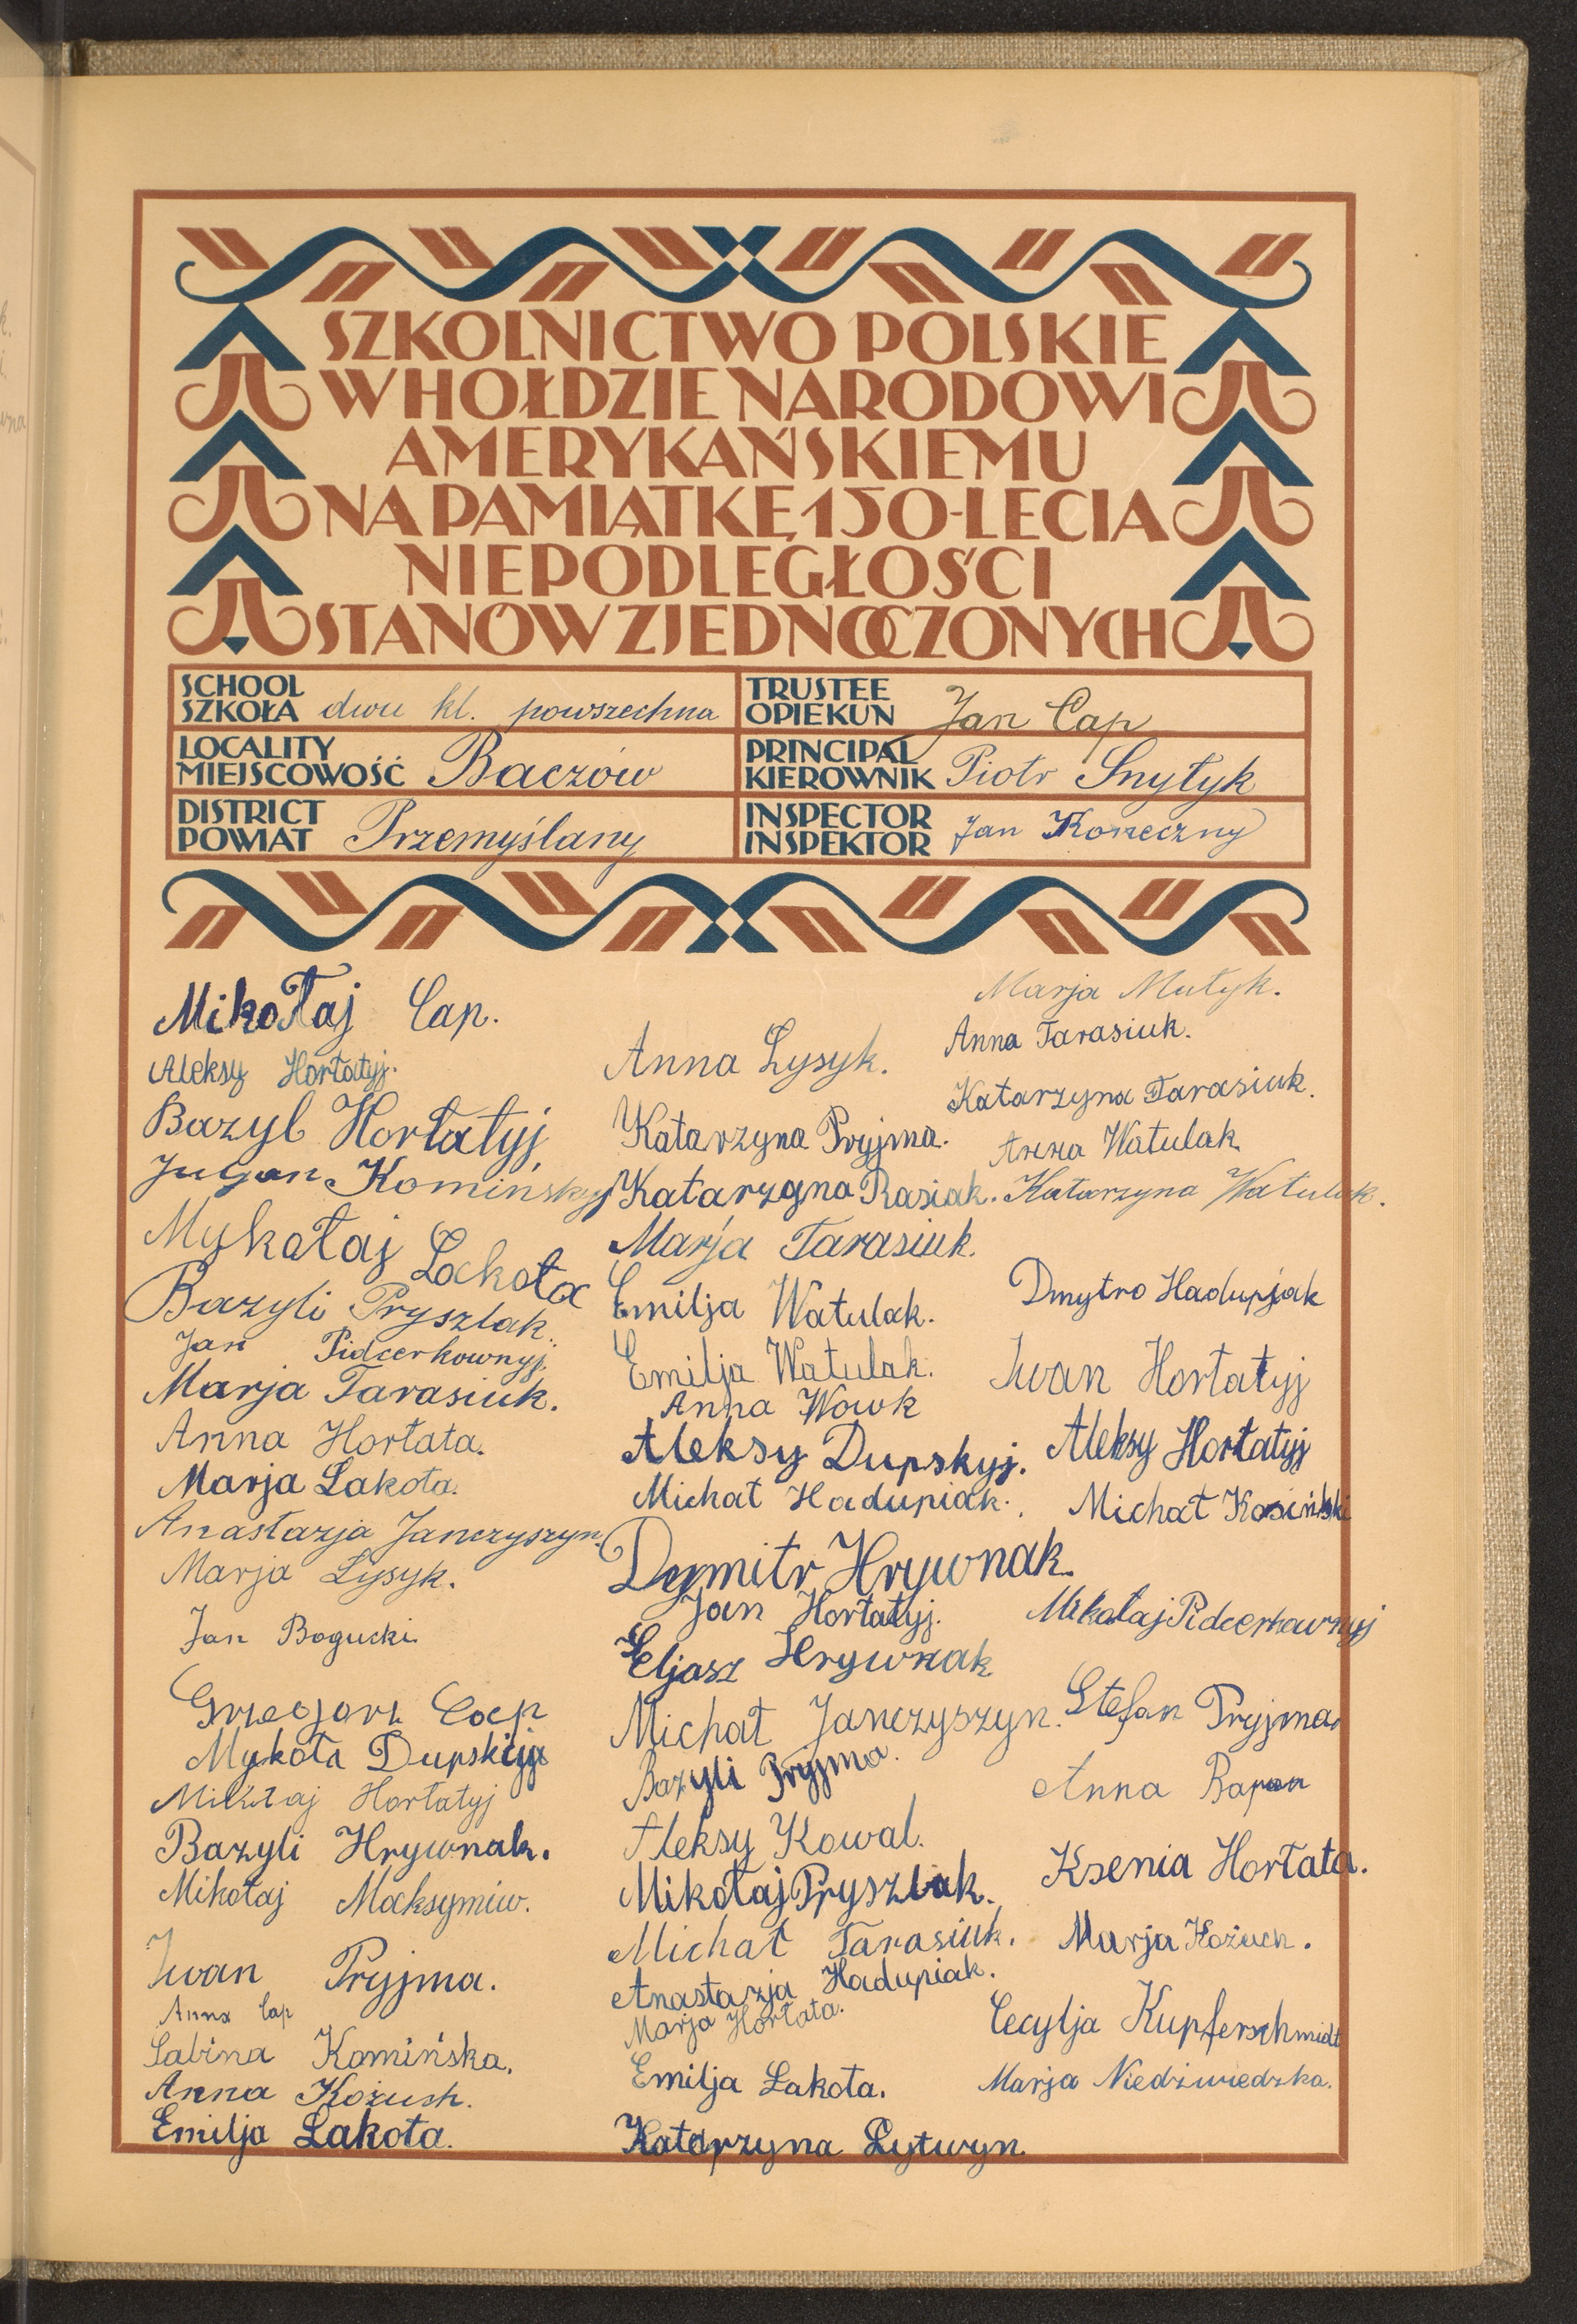 SZKOLNICTWO POLSKIE
W HOŁDZIE NARODOWI
AMERYKAŃSKIEMU
NA PAMIĄTKĘ 150-LECIA
NIEPODLEGŁOŚCI
STANÓW ZJEDNOCZONYCH
SCHOOL
SZKOŁA dwu kl. powszechna
TRUSTEE
OPIEKUN Jan Cap
LOCALITY
MIEJSCOWOŚĆ Baczów
PRINCIPAL
KIEROWNIK Piotr Snytyk
DISTRICT
POWIAT Przemyślany
INSPECTOR
INSPEKTOR Jan Koneczny
Mikołaj Cap.
Aleksy Hortatyj.
Bazyl Hortatyj
Juljan Komińskyj
Mykołaj Lakota
Bazyli Pryszlak.
Jan Pidcerkownyj.
Marja Tarasiuk.
Anna Hortata.
Marja Lakota.
Anastazja Janczyszyn.
Marja Lysyk.
Jan Bogucki
Grzegorz Cap
Mykoła Dupskyj
Mikołaj Hortatyj
Bazyli Hrywnak.
Mikołaj Maksymiw.
Iwan Pryjma.
Anna Cap
Sabina Komińska.
Anna Kożuch.
Emilja Lakota.
Anna Lysyk.
Katarzyna Pryjma.
Katarzyna Rasiak.
Marja Tarasiuk.
Emilja Watulak.
Emilja Watulak.
Anna Wowk
Aleksy Dupskyj.
Michał Hadupiak.
Dymitr Hrywnak.
Jan Hortatyj.
Eljasz Hrywnak
Michał Janczyszyn.
Bazyli Pryjma.
Aleksy Kowal.
Mikołaj Pryszlak.
Michał Tarasiuk.
Anastazja Hadupiak.
Marja Hortata.
Emilja Lakota.
Katarzyna Lytwyn.
Marja Mutyk.
Anna Tarasiuk.
Katarzyna Tarasiuk.
Anna Watulak
Katarzyna Watulak.
Dmytro Hadupjak
Iwan Hortatyj
Aleksy Hortatyj
Michał Kosiński
Mikołaj Pidcerkownyj
Stefan Pryjma
Anna Baran
Ksenia Hortata.
Marja Kożuch.
Cecylja Kupferschmidt
Marja Niedźwiedzka.